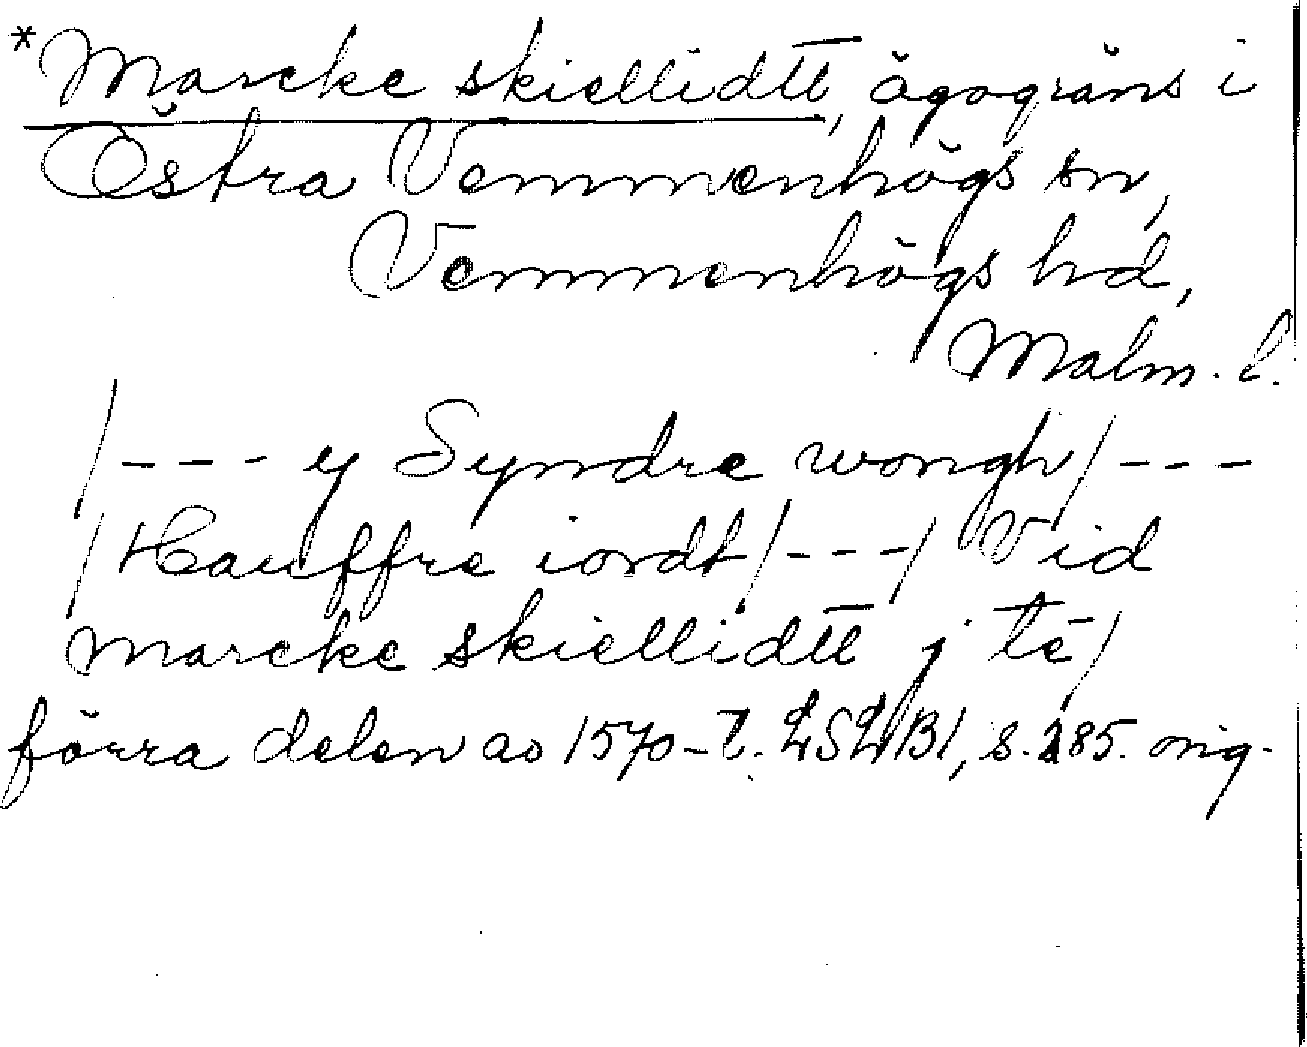 *Marcke skiellidtt, ägogräns i
Östra Vemmenhögs sn,
Vemmenhögs hd,
Malm. l.
/--- y Syndre wongh/---
/Hauffre iordt/---/ Vid
marcke skiellidtt j té/
förra delen av 1570-t. LSLB1, s. 285. orig.